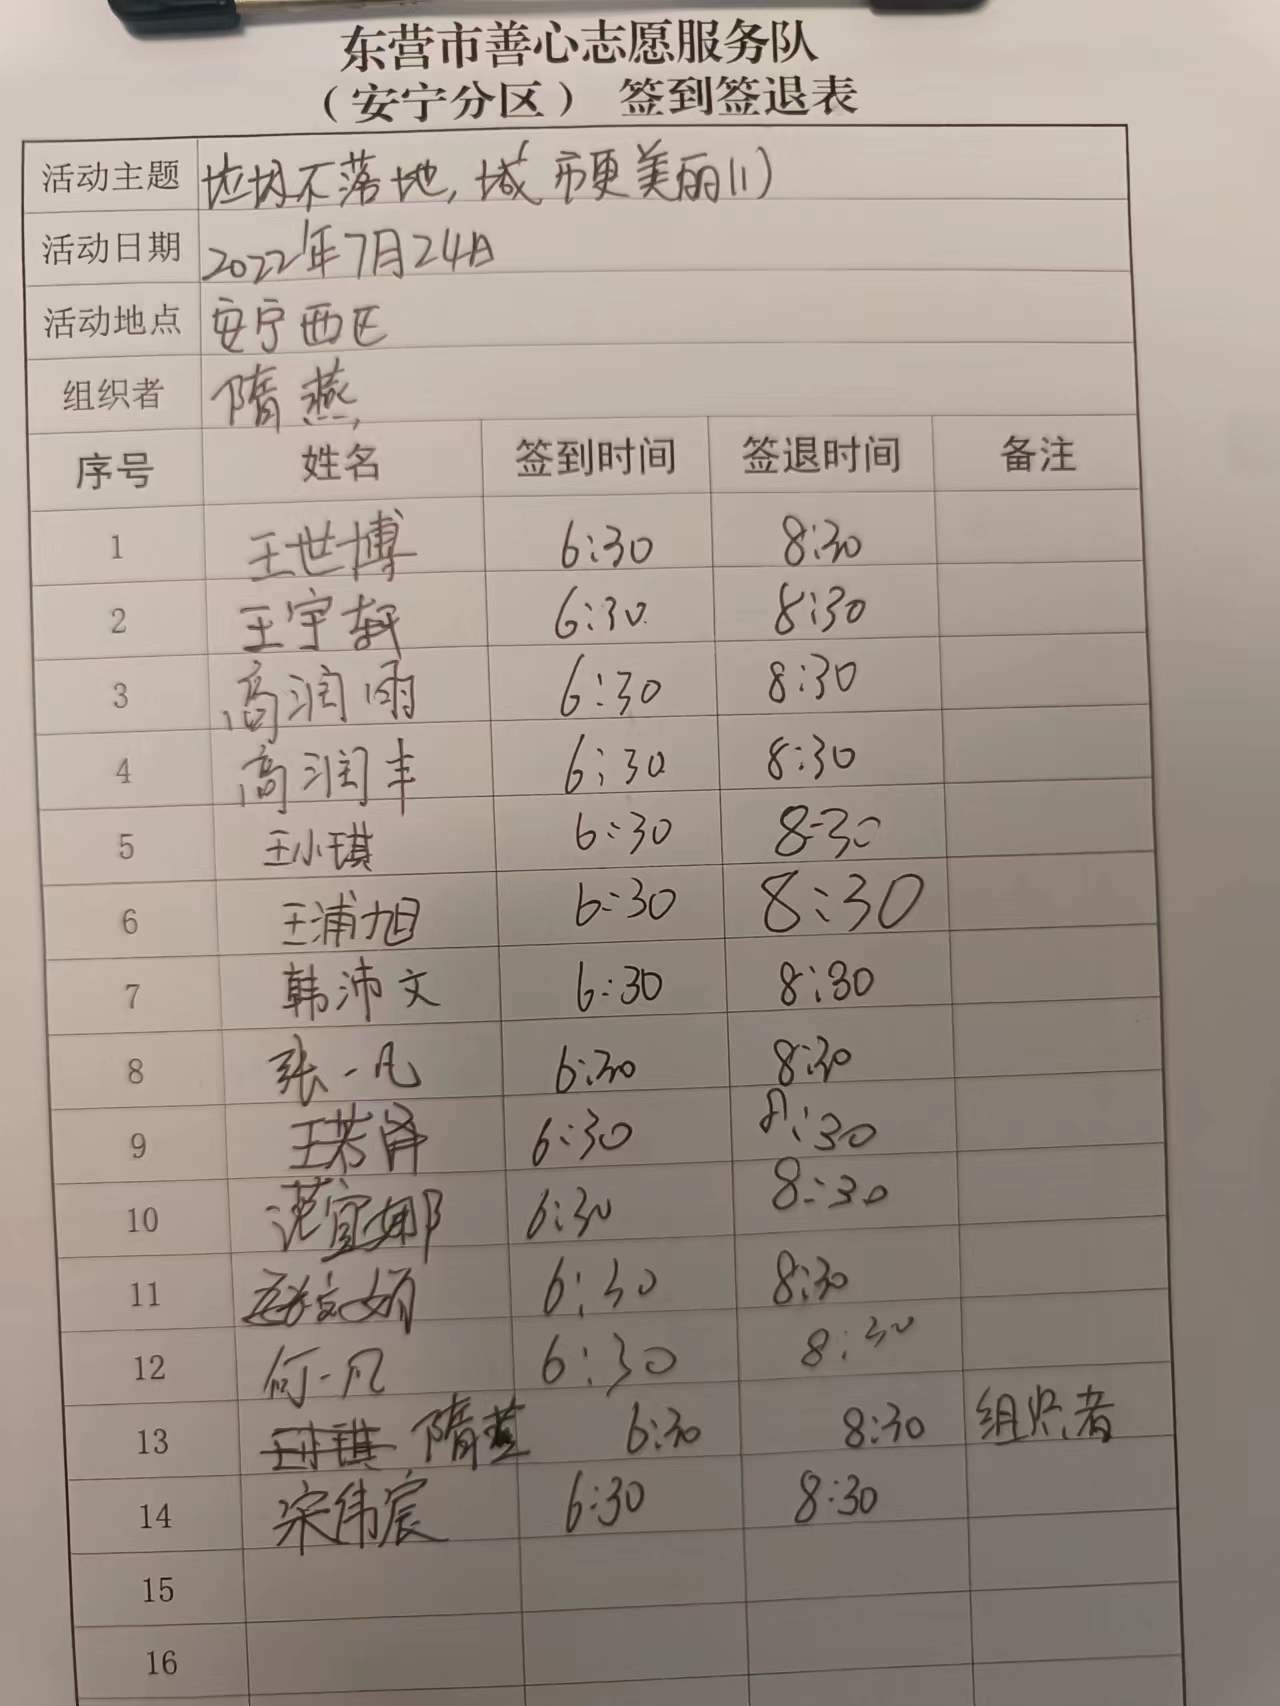 东营市善心志愿服务队
（安宁分区） 签到签退表
活动主题 垃圾不落地，城市更美丽(1)
活动日期 2022年7月24日
活动地点 安宁西区
组织者 隋燕
序号 姓名 签到时间 签退时间 备注
1 王世博 6:30 8:30
2 王宇轩 6:30 8:30
3 高润雨 6:30 8:30
4 高润丰 6:30 8:30
5 王小琪 6:30 8:30
6 王浦旭 6:30 8:30
7 韩沛文 6:30 8:30
8 张一凡 6:30 8:30
9 6:30 8:30
10 范宜娜 6:30 8:30
11 6:30 8:30
12 何一凡 6:30 8:30
13 王小琪 隋燕 6:30 8:30 组织者
14 宋伟宸 6:30 8:30
15
16